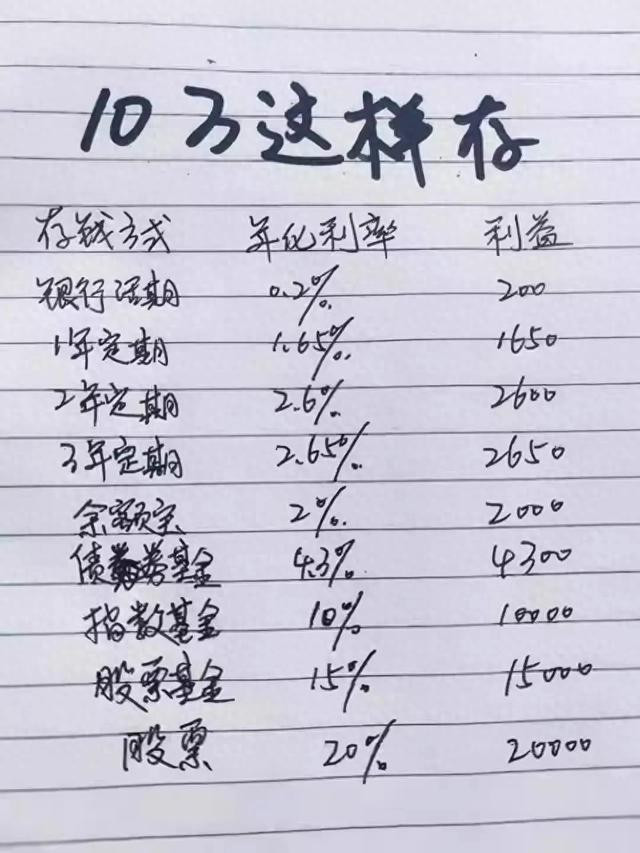 10万这样存
存钱方式 年化利率 利益
银行活期 0.2% 200
1年定期 1.65% 1650
2年定期 2.6% 2600
3年定期 2.65% 2650
余额宝 2% 2000
债券基金 4.3% 4300
指数基金 10% 10000
股票基金 15% 15000
股票 20% 20000